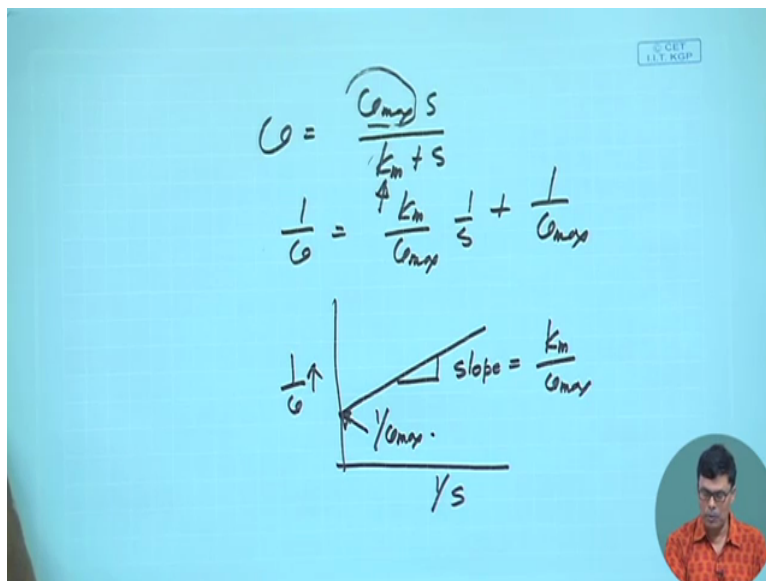 © CET
I.I.T. KGP
υ = υmax s / km + s
1/υ = km/υmax 1/s + 1/υmax
1/υ ↑
slope = km/υmax
1/υmax.
1/s